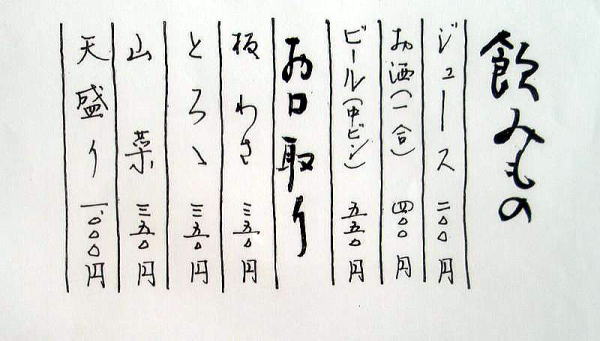 飲みもの
ジュース 二〇〇円
お酒(一合) 四〇〇円
ビール(中ビン) 五五〇円
お口取り
板わさ 三五〇円
とろろ 三五〇円
山菜 三五〇円
天盛り 一、〇〇〇円